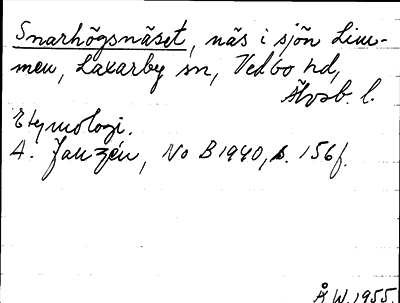 Snarhögsnäset, näs i sjön Lim-
men, Laxarby sn, Vedbo hd,
Älvsb. l.
Etymologi.
A. Janzén, No B 1940, s. 156 f.
Å W. 1955.